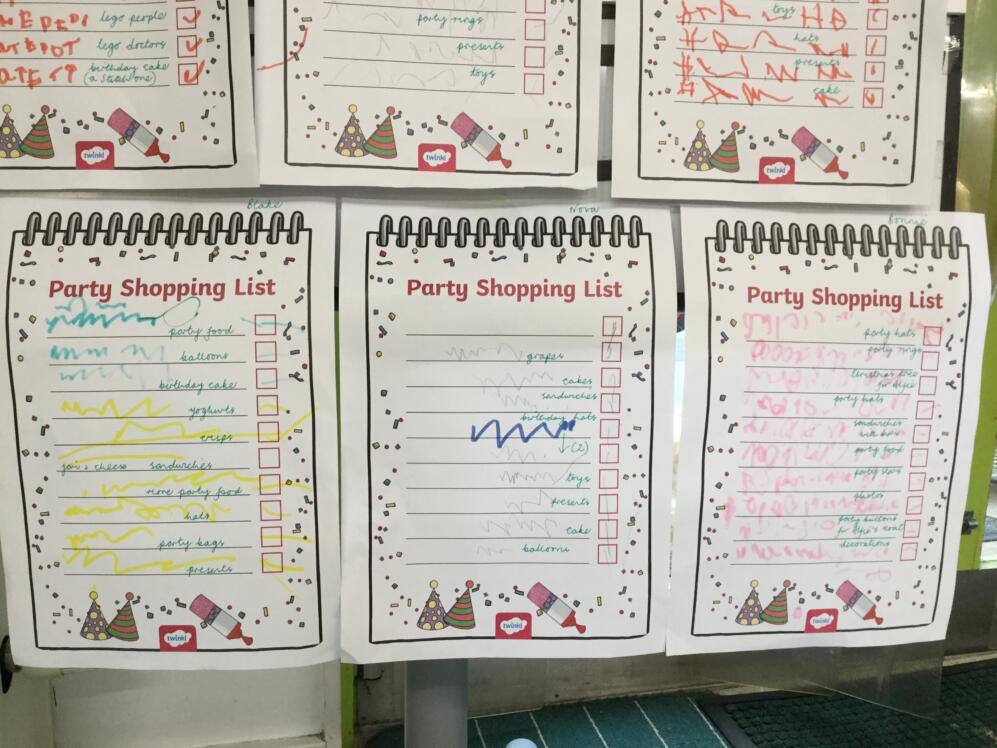 lego people
lego doctors
birthday cake
twinkl
party rings
presents
toys
twinkl
toys
hats
presents
cake
twinkl
Blake
Party Shopping List
party food
balloons
birthday cake
yoghurts
crisps
jam + cheese sandwiches
more party food
hats
party bags
presents
twinkl
Nova
Party Shopping List
grapes
cakes
sandwiches
birthday hats
(2)
toys
presents
cake
balloons
twinkl
Bonnie
Party Shopping List
party hats
party rings
christmas tree
for alfie
party hats
sandwiches
with ham
party food
party
photos
party buttons
for alfie's coat
decorations
twinkl